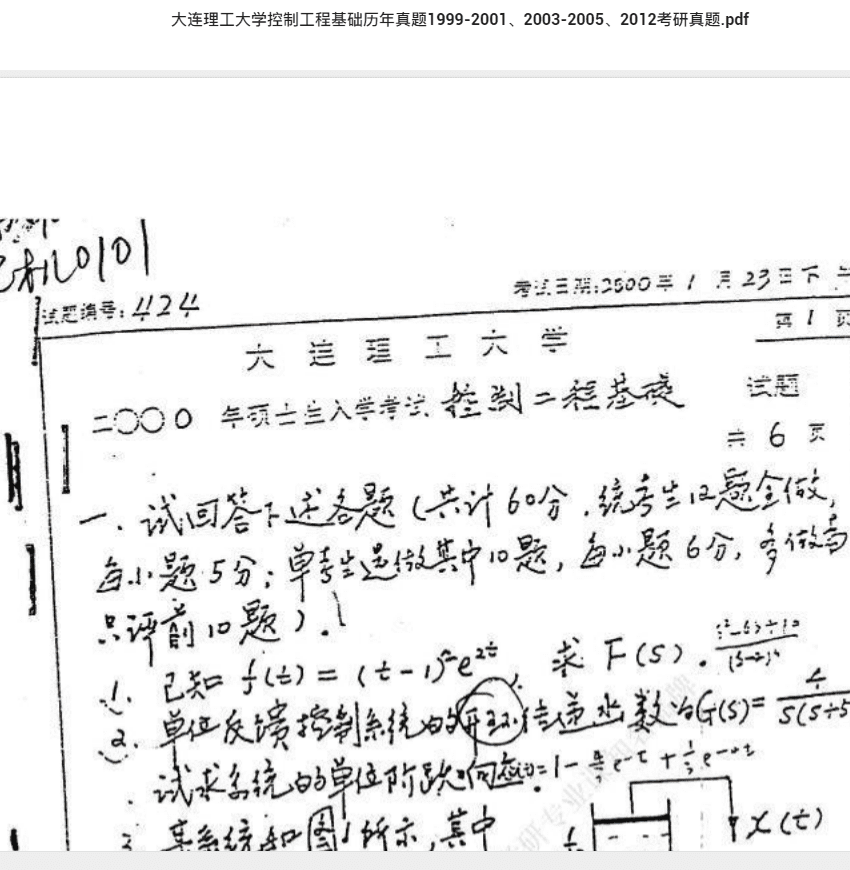 大连理工大学控制工程基础历年真题1999-2001、2003-2005、2012考研真题.pdf
机0101
试题编号:424
考试日期:2000年1月23日下午
第1页
大连理工大学
二〇〇〇年硕士生入学考试 控制工程基础 试题
共6页
一、试回答下述各题(共计60分,统考生12题全做,
每小题5分;单考生选做其中10题,每小题6分,多做者
只评前10题)。
1. 已知 f(t)=(t-1)²e²ᵗ, 求 F(s).
2. 单位反馈控制系统的开环传递函数为G(s)=4/S(S+5
试求系统的单位阶跃响应。=1-
3. 某系统如图1所示,其中
x(t)